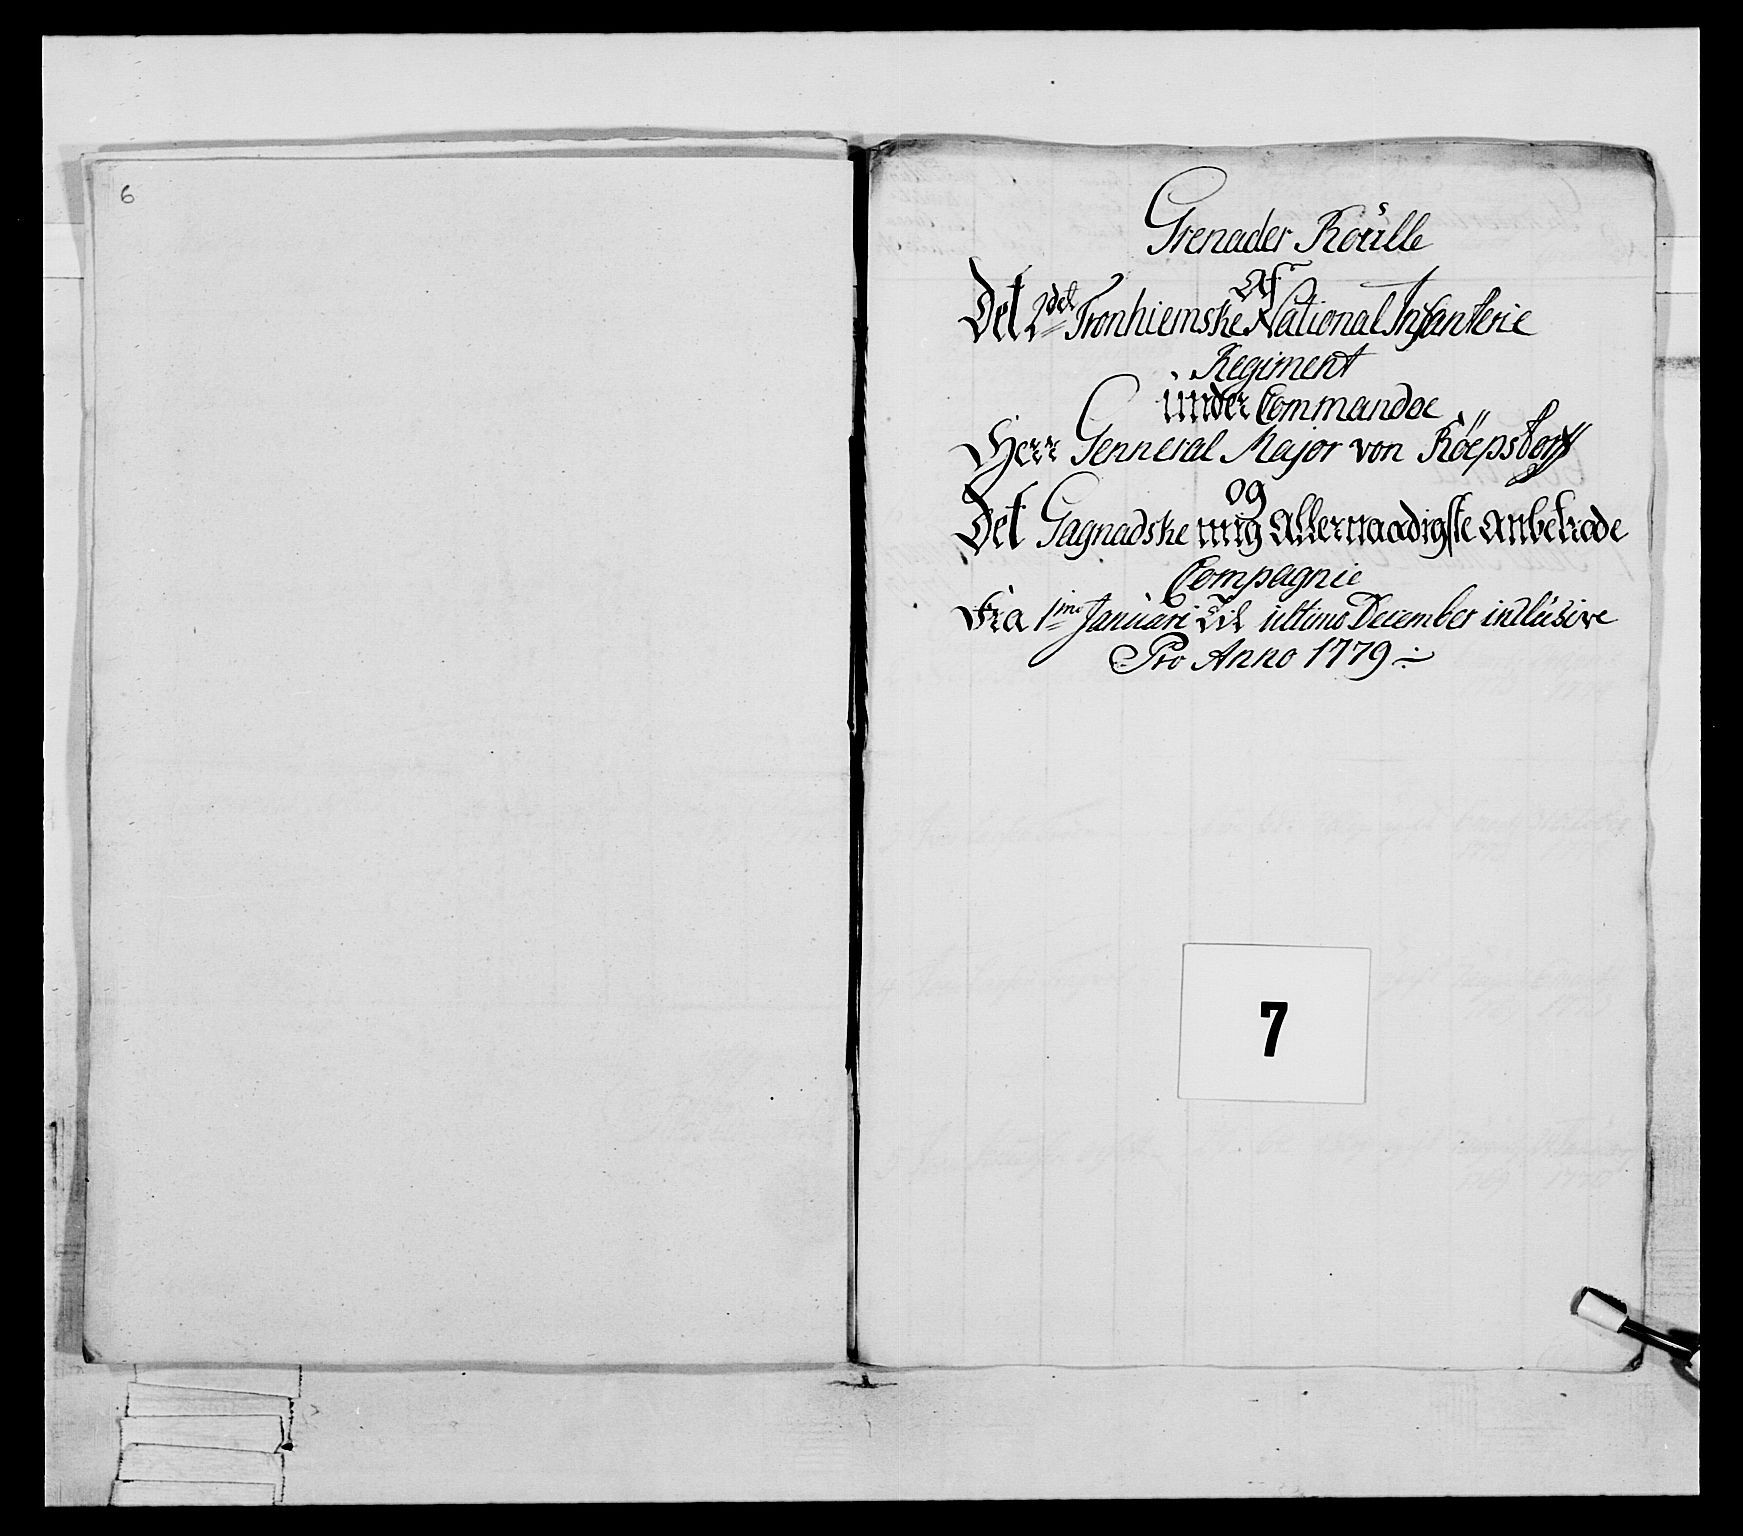 6
Grenader Roülle
Af
Det 2det Tronhiemske National Infanterie
Regiment
ünder Commandoe
Herr Genneral Major von Röepstorff
og
Det Gagnadske mig Allernaadigste Anbetrode
Compagnie
Fra 1mo Januari Til ultimo December inclüsive
Pro Anno 1779
7